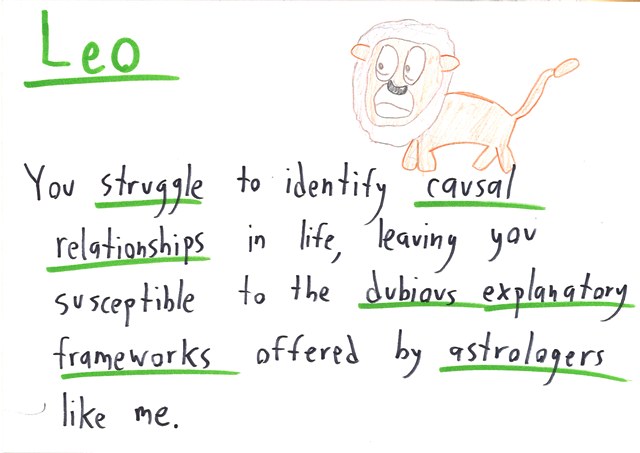 Leo
You struggle to identify causal
relationships in life, leaving you
susceptible to the dubious explanatory
frameworks offered by astrologers
like me.